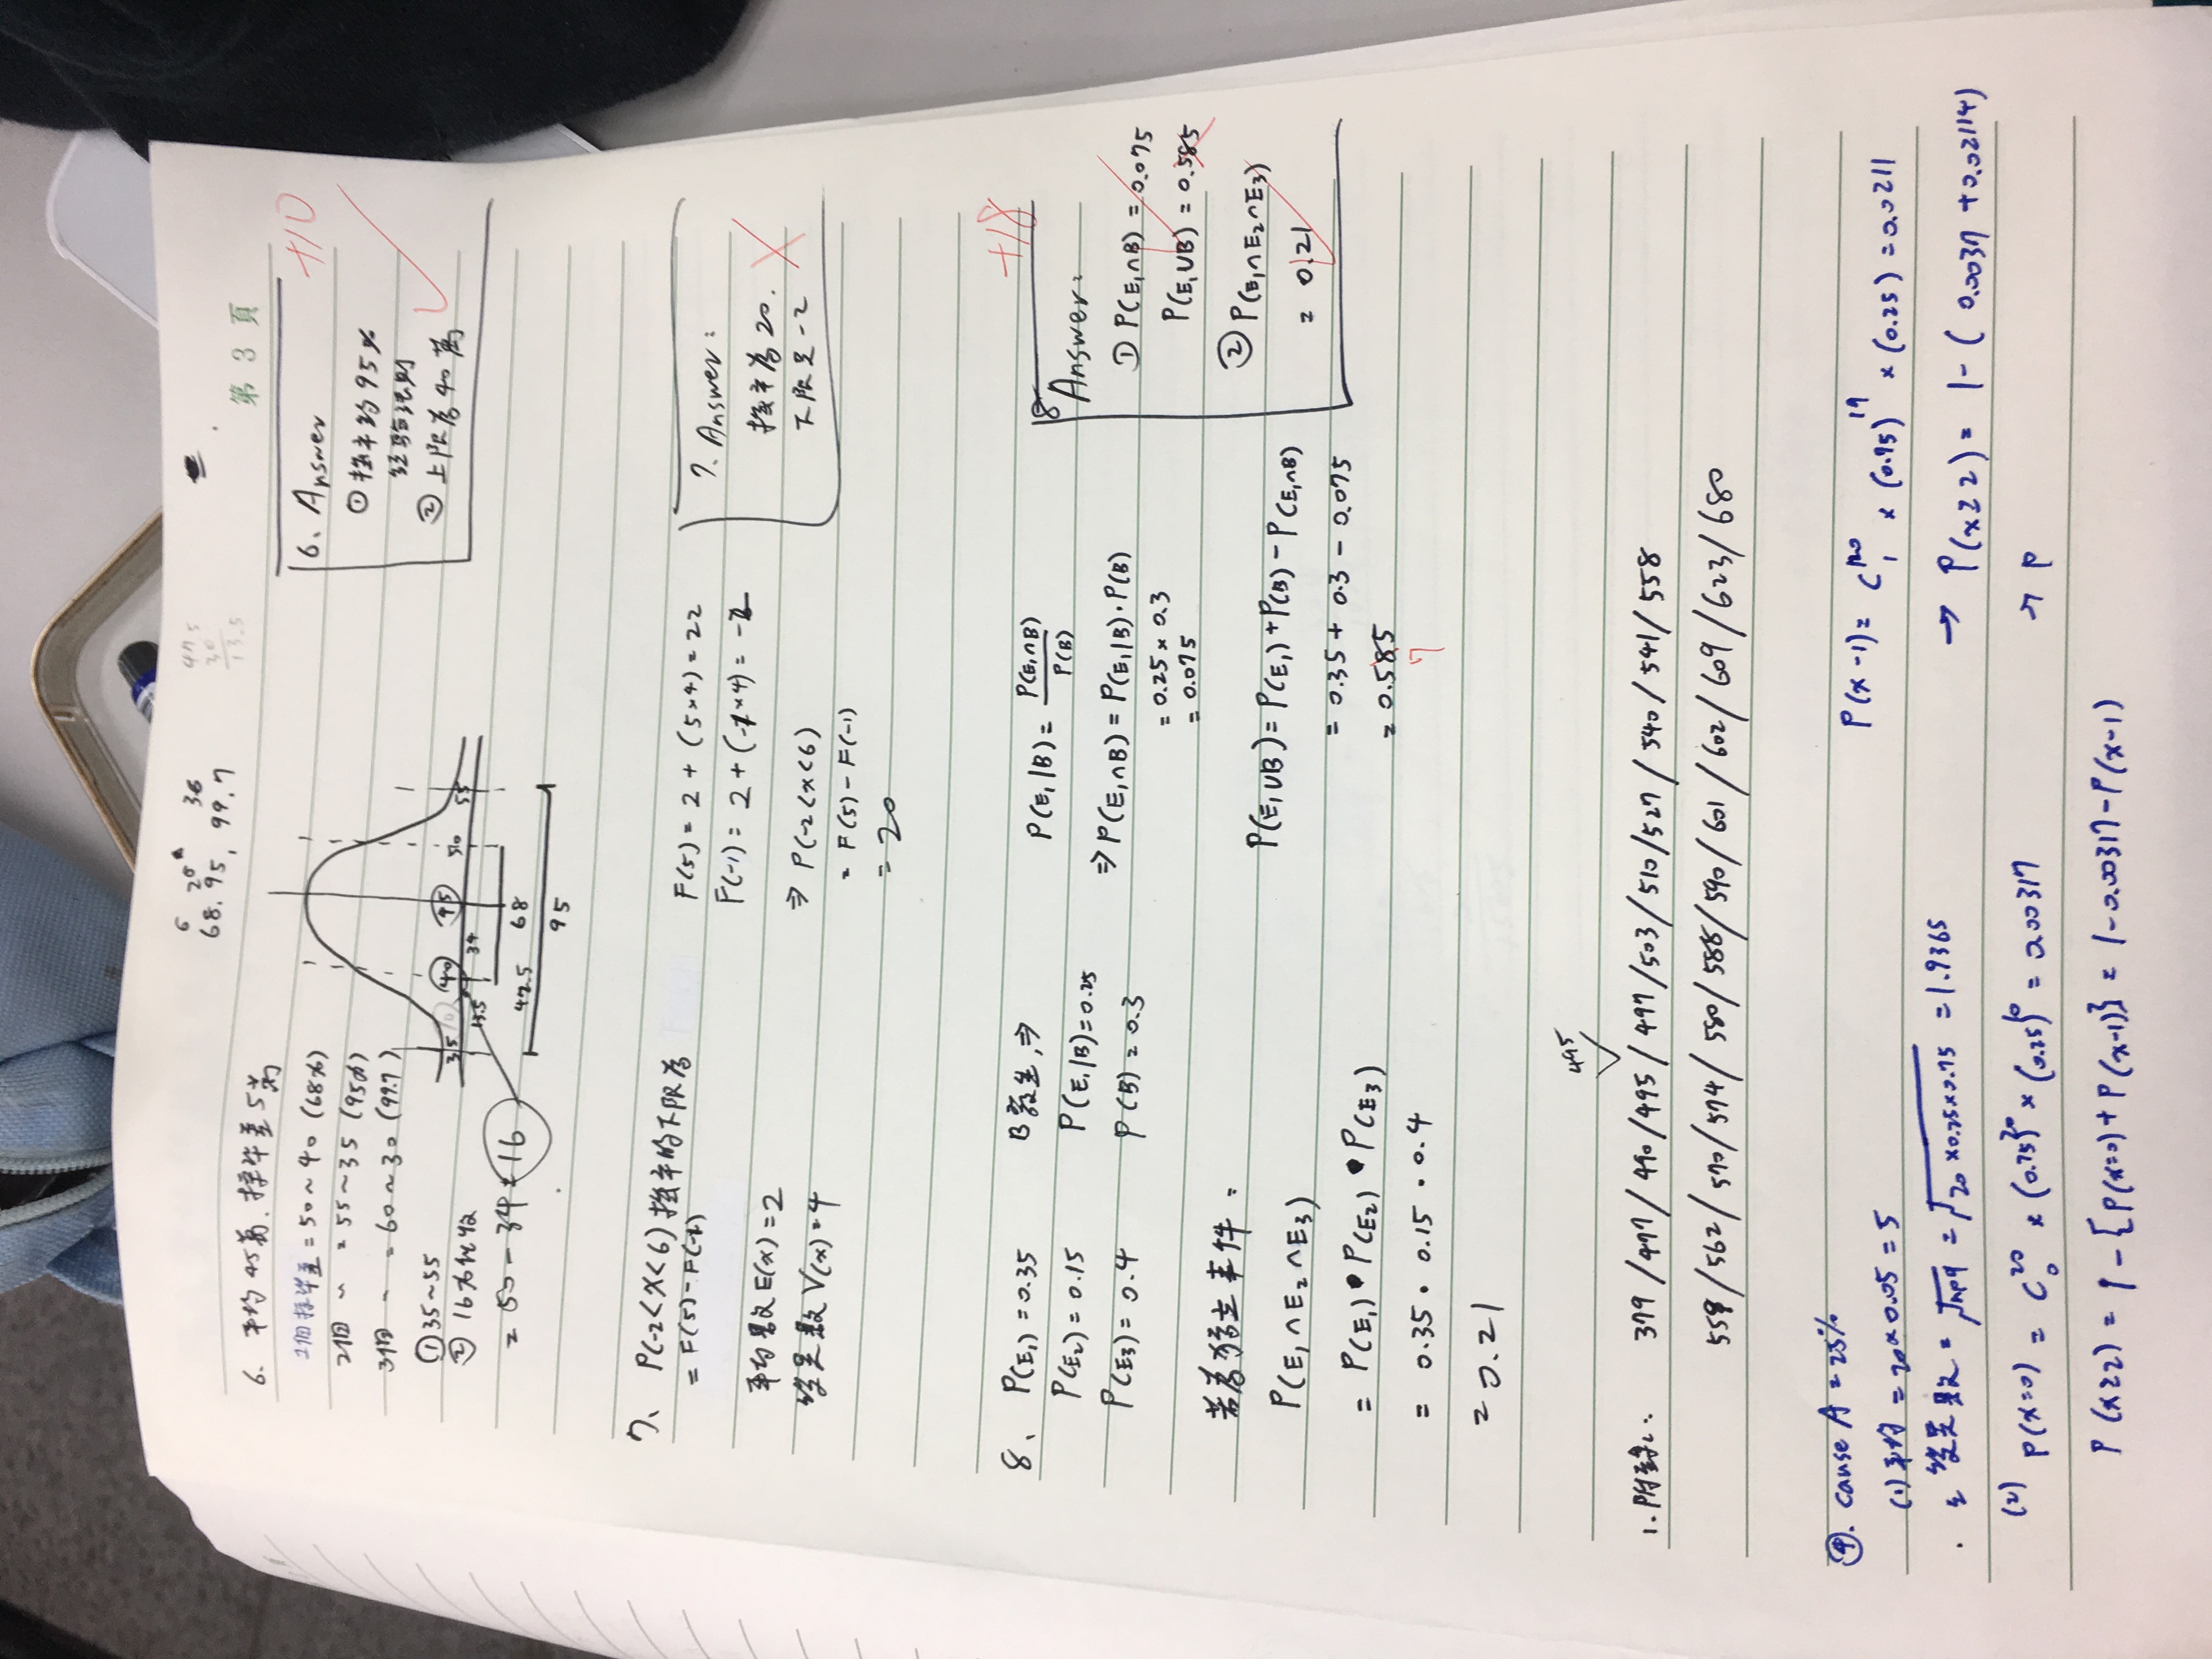 68. 95, 99.7
47.5
13.5
第 3 頁
6、平均45萬、標準差5萬
1個標準差 = 50~40 (68%)
2個 〃 = 55~35 (95%)
3個 〃 = 60~30 (99.7)
① 35~55
② 16%
= 50 - 34 = 16
35 40 45 50 55
13.5 34
47.5 68
95
+10
6、Answer
① 機率約95%
經驗法則
② 上限為40萬
7、P(-2<x<6)機率的下限為
= F(5) - F(-1)
平均數E(x)=2
變異數V(x)=4
F(5) = 2 + (5×4) = 22
F(-1) = 2 + (-1×4) = -2
⇒ P(-2<x<6)
= F(5) - F(-1)
= 20
7. Answer:
機率為20.
下限是-2
8、P(E₁) = 0.35
P(E₂) = 0.15
P(E₃) = 0.4
B發生,⇒
P(E₁|B)=0.25
P(B) = 0.3
P(E₁|B) = P(E₁∩B) / P(B)
⇒ P(E₁∩B) = P(E₁|B)·P(B)
= 0.25 × 0.3
= 0.075
若為獨立事件:
P(E₁∩E₂∩E₃)
= P(E₁)•P(E₂)•P(E₃)
= 0.35 · 0.15 · 0.4
= 0.21
P(E₁∪B) = P(E₁)+P(B)-P(E₁∩B)
= 0.35 + 0.3 - 0.075
= 0.585
7
+18
8
Answer:
① P(E₁∩B) = 0.075
P(E₁∪B) = 0.585
② P(E₁∩E₂∩E₃)
= 0.21
495
1.附錄: 379/477/490/495/497/503/510/527/540/541/558
559/562/570/574/580/588/590/601/602/609/623/680
④. cause A = 25%
(1)平均 = 20×0.05 = 5
變異數 = √npq = √20×0.25×0.75 = 1.9365
(2) P(x=0) = C²⁰₀ × (0.75)²⁰ × (0.25)⁰ = 0.00317
P(x≥2) = 1-[P(x=0)+P(x-1)] = 1-0.00317-P(x-1)
P(x-1) = C²⁰₁ × (0.75)¹⁹ × (0.25) = 0.0211
→ P(x≥2) = 1-(0.0037+0.02114)
→ P